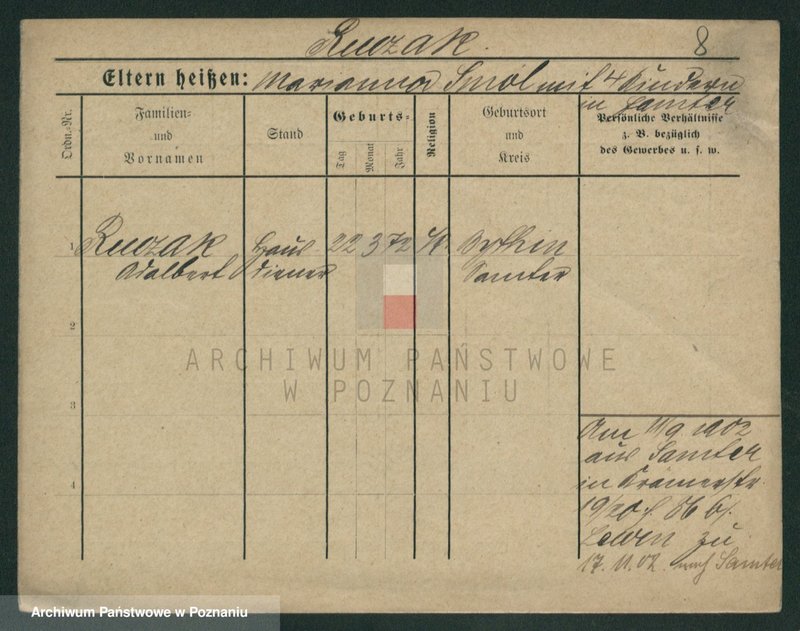 Ruczak.
8
Eltern heißen: Marianna Smol mit 4 Kindern
in Samter
Ordn.-Nr.
Familien-
und
Vornamen
Stand
Geburts-
Tag
Monat
Jahr
Religion
Geburtsort
und
Kreis
Persönliche Verhältnisse
z. B. bezüglich
des Gewerbes u. s. w.
1 Ruczak Haus 22 3 72
Adalbert diener Samter
2
3
4
Am 11/9 1902
aus Samter
in Krämerstr.
19/20
Lewin zu
17. 11. 02. nach Samter
ARCHIWUM PAŃSTWOWE
W POZNANIU
Archiwum Państwowe w Poznaniu